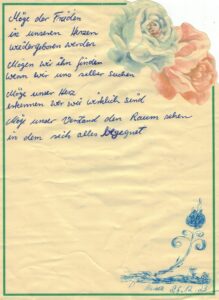 Möge der Frieden
in unseren Herzen
wiedergeboren werden
Mögen wir ihn finden
wenn wir uns selber suchen
Möge unser Herz
erkennen wer wir wirklich sind
Möge unser Verstand den Raum sehen
in dem sich alles begegnet